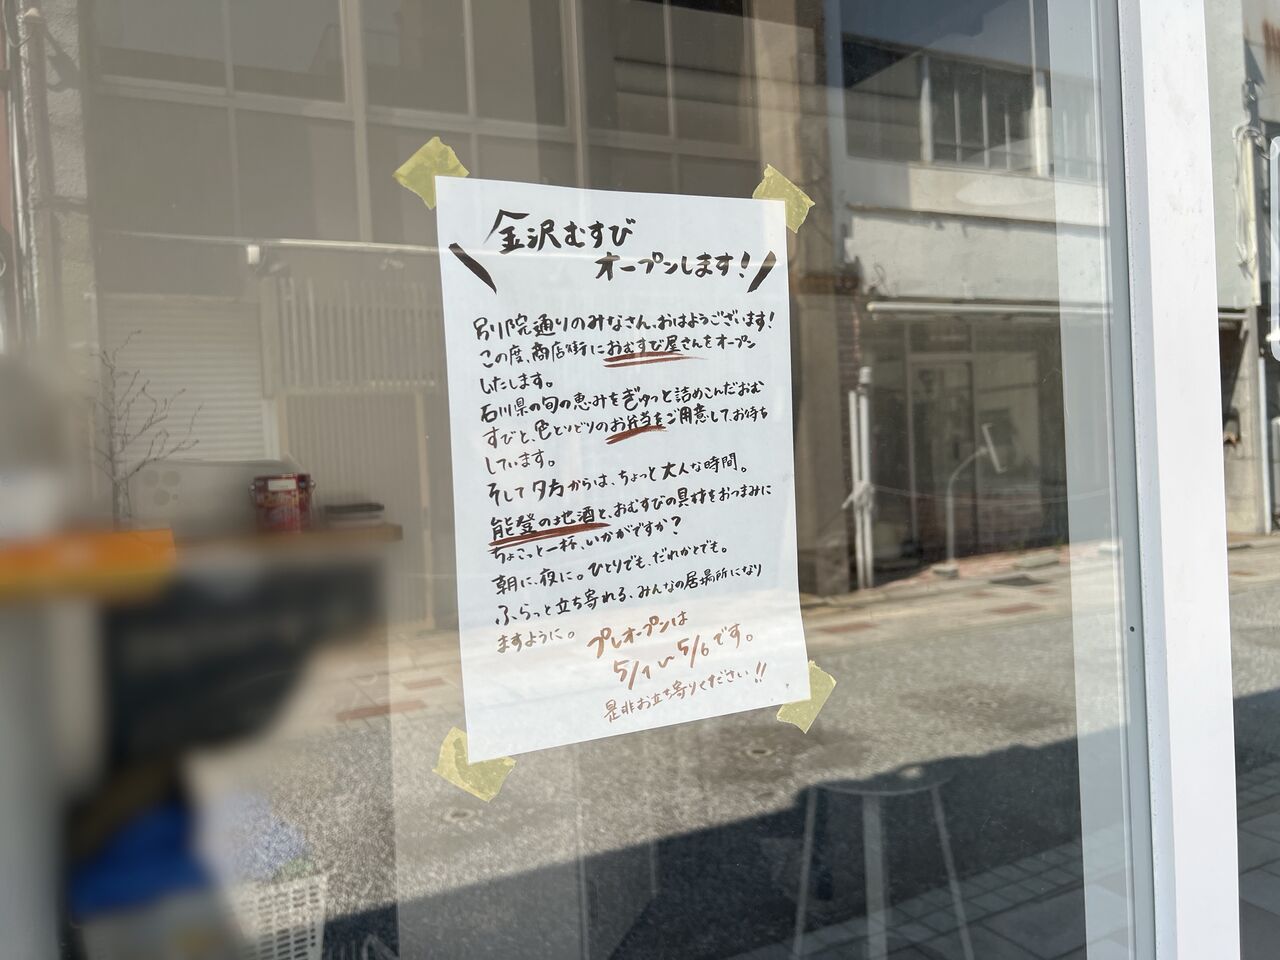 金沢むすび
オープンします！
別院通りのみなさん、おはようございます！
この度、商店街におむすび屋さんをオープン
したします。
石川県の旬の恵みをぎゅっと詰めこんだおむ
すびと、色とりどりのお弁当をご用意して、お待ち
しています。
そして夕方からは、ちょっと大人な時間。
能登の地酒と、おむすびの具材をおつまみに
ちょこっと一杯、いかがですか？
朝に、夜に。ひとりでも、だれかとでも。
ふらっと立ち寄れる、みんなの居場所になり
ますように。
プレオープンは
5/1〜5/6です。
是非お立ち寄りください!!